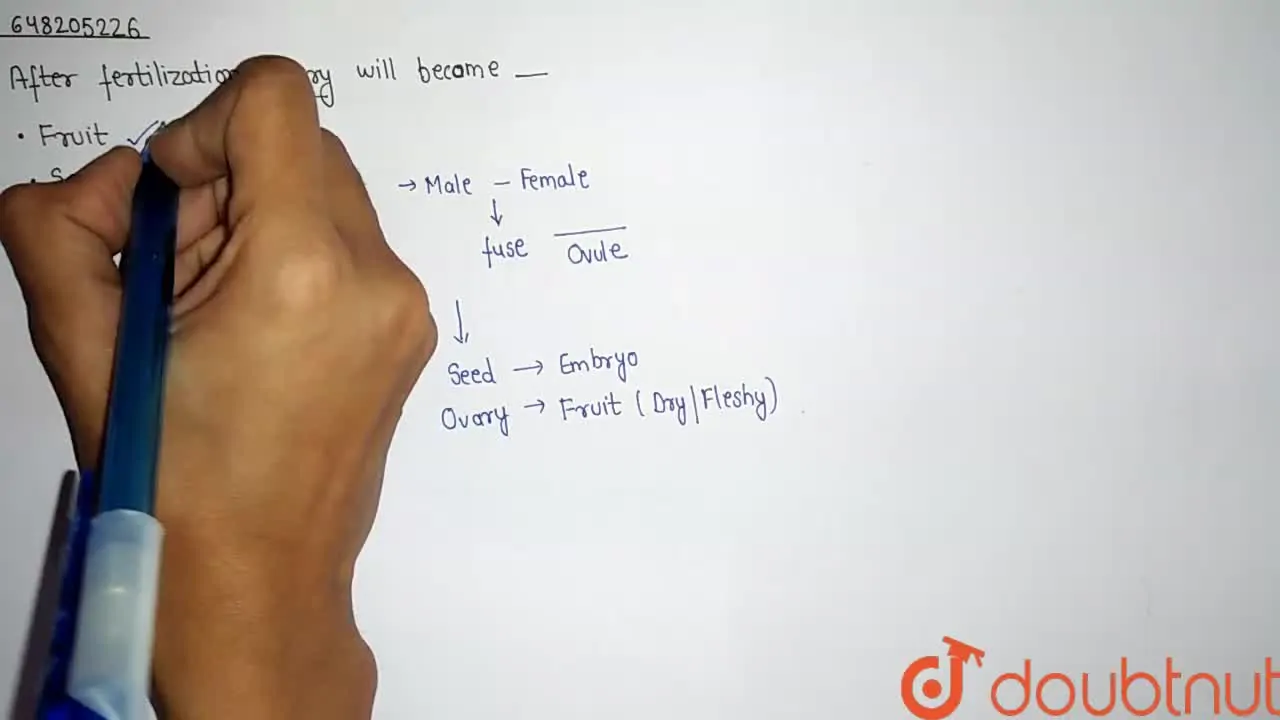 648205226
After fertilization will become —
• Fruit ✓
→ Male – Female
↓
fuse Ovule
↓
Seed → Embryo
Ovary → Fruit (Dry|Fleshy)
doubtnut